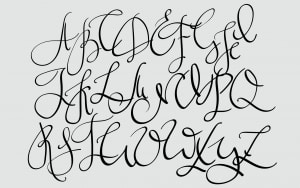 A B C D E F G H
I K L M N O P Q
R S T U V W X Y Z